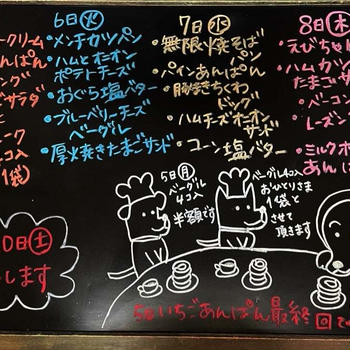 ークリーム
んぱん
ング
サラダ
ーク
コ入
1袋)
6日(火)
・メンチカツパン
・ハムとオニオン
ポテトチーズ
・おぐら塩バター
・ブルーベリーチーズ
ベーグル
・厚焼きたまごサンド
7日(水)
・無限焼そば
パン
・パインあんぱん
・豚焼きちくわ
ドッグ
・ハムチーズオニオン
サンド
・コーン塩バター
8日(木)
・えびちゃ
・ハムカツ
たまごサ
・ベーコン
・レーズン
・ミルク
あん
5日(月)
ベーグル
4コ入
半額です
ベーグル4コ入
おひとりさま
1袋と
させて
頂きます
0日(土)
します
5日いちごあんぱん最終回で